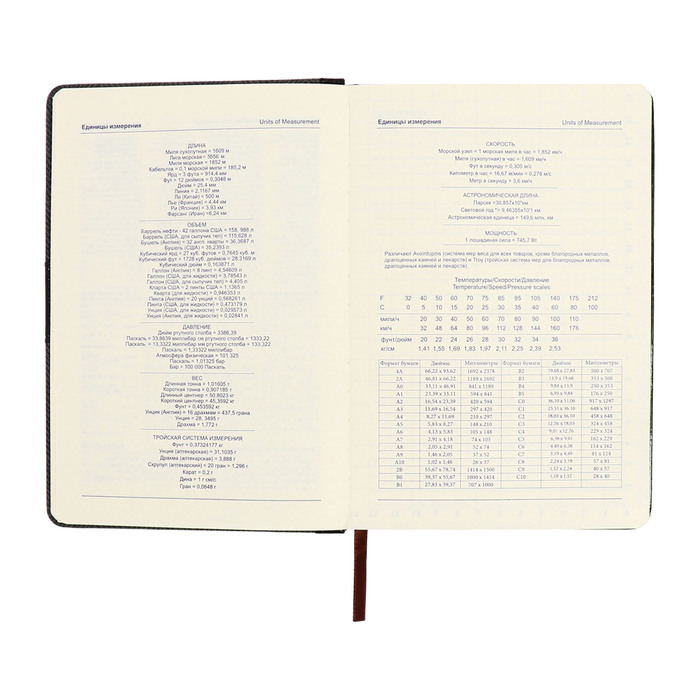 Единицы измерения Units of Measurement
ДЛИНА
Миля сухопутная = 1609 м
Лига морская = 5556 м
Миля морская = 1852 м
Кабельтов = 0,1 морской мили = 185,2 м
Ярд = 3 фута = 914,4 мм
Фут = 12 дюймов = 0,3048 м
Дюйм = 25,4 мм
Линия = 2,1167 мм
Ли (Китай) = 500 м
Лье (Франция) = 4,44 км
Ри (Япония) = 3,93 км
Фарсанг (Иран) =6,24 км
ОБЪЕМ
Баррель нефти - 42 галлона США = 158, 988 л
Баррель (США, для сыпучих тел) = 115,628 л
Бушель (Англия) = 32 англ. кварты = 36,3687 л
Бушель (США) = 35,2393 л
Кубический ярд = 27 куб. футов = 0,7645 м
Кубический фут = 1728 куб. дюймов = 28,3169 л
Кубический дюйм = 0,163871 л
Галлон (Англия) = 8 пинт = 4,54609 л
Галлон (США, для жидкости) = 3,78543 л
Галлон (США, для сыпучих тел) = 4,405 л
Кварта США = 2 пинты США = 1,1365 л
Кварта (для жидкости) = 0,946353 л
Пинта (Англия) = 20 унций = 0,568261 л
Пинта (США, для жидкости) = 0,473179 л
Унция (США, для жидкости) = 0,029573 л
Унция (Англия, для жидкости) = 0,02841 л
ДАВЛЕНИЕ
Дюйм ртутного столба = 3386,39
Паскаль = 33,8639 миллибар = мм ртутного столба = 1333,22
Паскаль = 13,3322 миллибар = мм ртутного столба = 133,322
Паскаль = 1,33322 миллибар
Атмосфера физическая = 101 325
Паскаль = 1,01325 бар
Бар = 100 000 Паскаль
ВЕС
Длинная тонна = 1,01605 т
Короткая тонна = 0,907185 т
Длинный центнер = 50,8023 кг
Короткий центнер = 45,3592 кг
Фунт = 0,453592 кг
Унция (Англия) = 16 драхмам = 437,5 грана
Унция = 28, 3495 г
Драхма = 1,772 г
ТРОЙСКАЯ СИСТЕМА ИЗМЕРЕНИЯ
Фунт = 0,37324177 кг
Унция (аптекарская) = 31,1035 г
Драхма (аптекарская) = 3,888 г
Скрупул (аптекарский) = 20 гран = 1,296 г
Карат = 0,2 г
Дина = 1 г см/с
Гран = 0,0648 г
Единицы измерения Units of Measurement
СКОРОСТЬ
Морской узел = 1 морская миля в час = 1,852 км/ч
Миля (сухопутная) в час = 1,609 км/ч
Фут в секунду = 0,305 м/с
Километр в час = 16,67 м/мин = 0,278 м/с
Метр в секунду = 3,6 км/ч
АСТРОНОМИЧЕСКАЯ ДЛИНА
Парсек =30,857х10³км
Световой год *= 9,46355х10¹1 км
Астрономическая единица = 149,6 млн. км
МОЩНОСТЬ
1 лошадиная сила = 745,7 Вт
Различают Avoirdupois (система мер веса для всех товаров, кроме благородных металлов,
драгоценных камней и лекарств) и Troy (тройская система мер для благородных металлов,
драгоценных камней и лекарств).
Температуры/Скорости/Давление
Temperature/Speed/Pressure scales
F 32 40 50 60 70 75 85 95 105 140 175 212
C 0 5 10 15 20 25 30 35 40 60 80 100
мили/ч 20 30 40 50 60 70 80 90 100 110
км/ч 32 48 64 80 96 112 128 144 160 176
фунт/дюйм 20 22 24 26 28 30 32 34 36
кг/см 1,41 1,55 1,69 1,83 1,97 2,11 2,25 2,39 2,53
Формат бумаги Дюймы Миллиметры Формат бумаги Дюймы Миллиметры
4A 66,22 x 93,62 1692 x 2378 B2 19,68 x 27,83 500 x 707
2A 46,81 x 66,22 1189 x 1692 B3 13,9 x 19,68 353 x 500
A0 33,11 x 46,81 841 x 1189 B4 9,84 x 13,9 250 x 353
A1 23,39 x 33,11 594 x 841 B5 6,93 x 9,84 176 x 250
A2 16,54 x 23,39 420 x 594 C0 36,10 x 51,06 917 x 1297
A3 11,69 x 16,54 297 x 420 C1 25,51 x 36,10 648 x 917
A4 8,27 x 11,69 210 x 297 C2 18,03 x 36,10 458 x 648
A5 5,83 x 8,27 148 x 210 C3 12,76 x 18,03 324 x 458
A6 4,13 x 5,83 105 x 148 C4 9,01 x 12,76 229 x 324
A7 2,91 x 4,13 74 x 105 C5 6,38 x 9,01 162 x 229
A8 2,05 x 2,91 52 x 74 C6 4,49 x 6,38 114 x 162
A9 1,46 x 2,05 37 x 52 C7 3,19 x 4,49 81 x 114
A10 1,02 x 1,46 26 x 37 C8 2,24 x 3,19 57 x 81
2B 55,67 x 78,74 1414 x 1500 C9 1,57 x 2,24 40 x 57
B0 39,37 x 55,67 1000 x 1414 C10 1,10 x 1,57 28 x 40
B1 27,83 x 39,37 707 x 1000